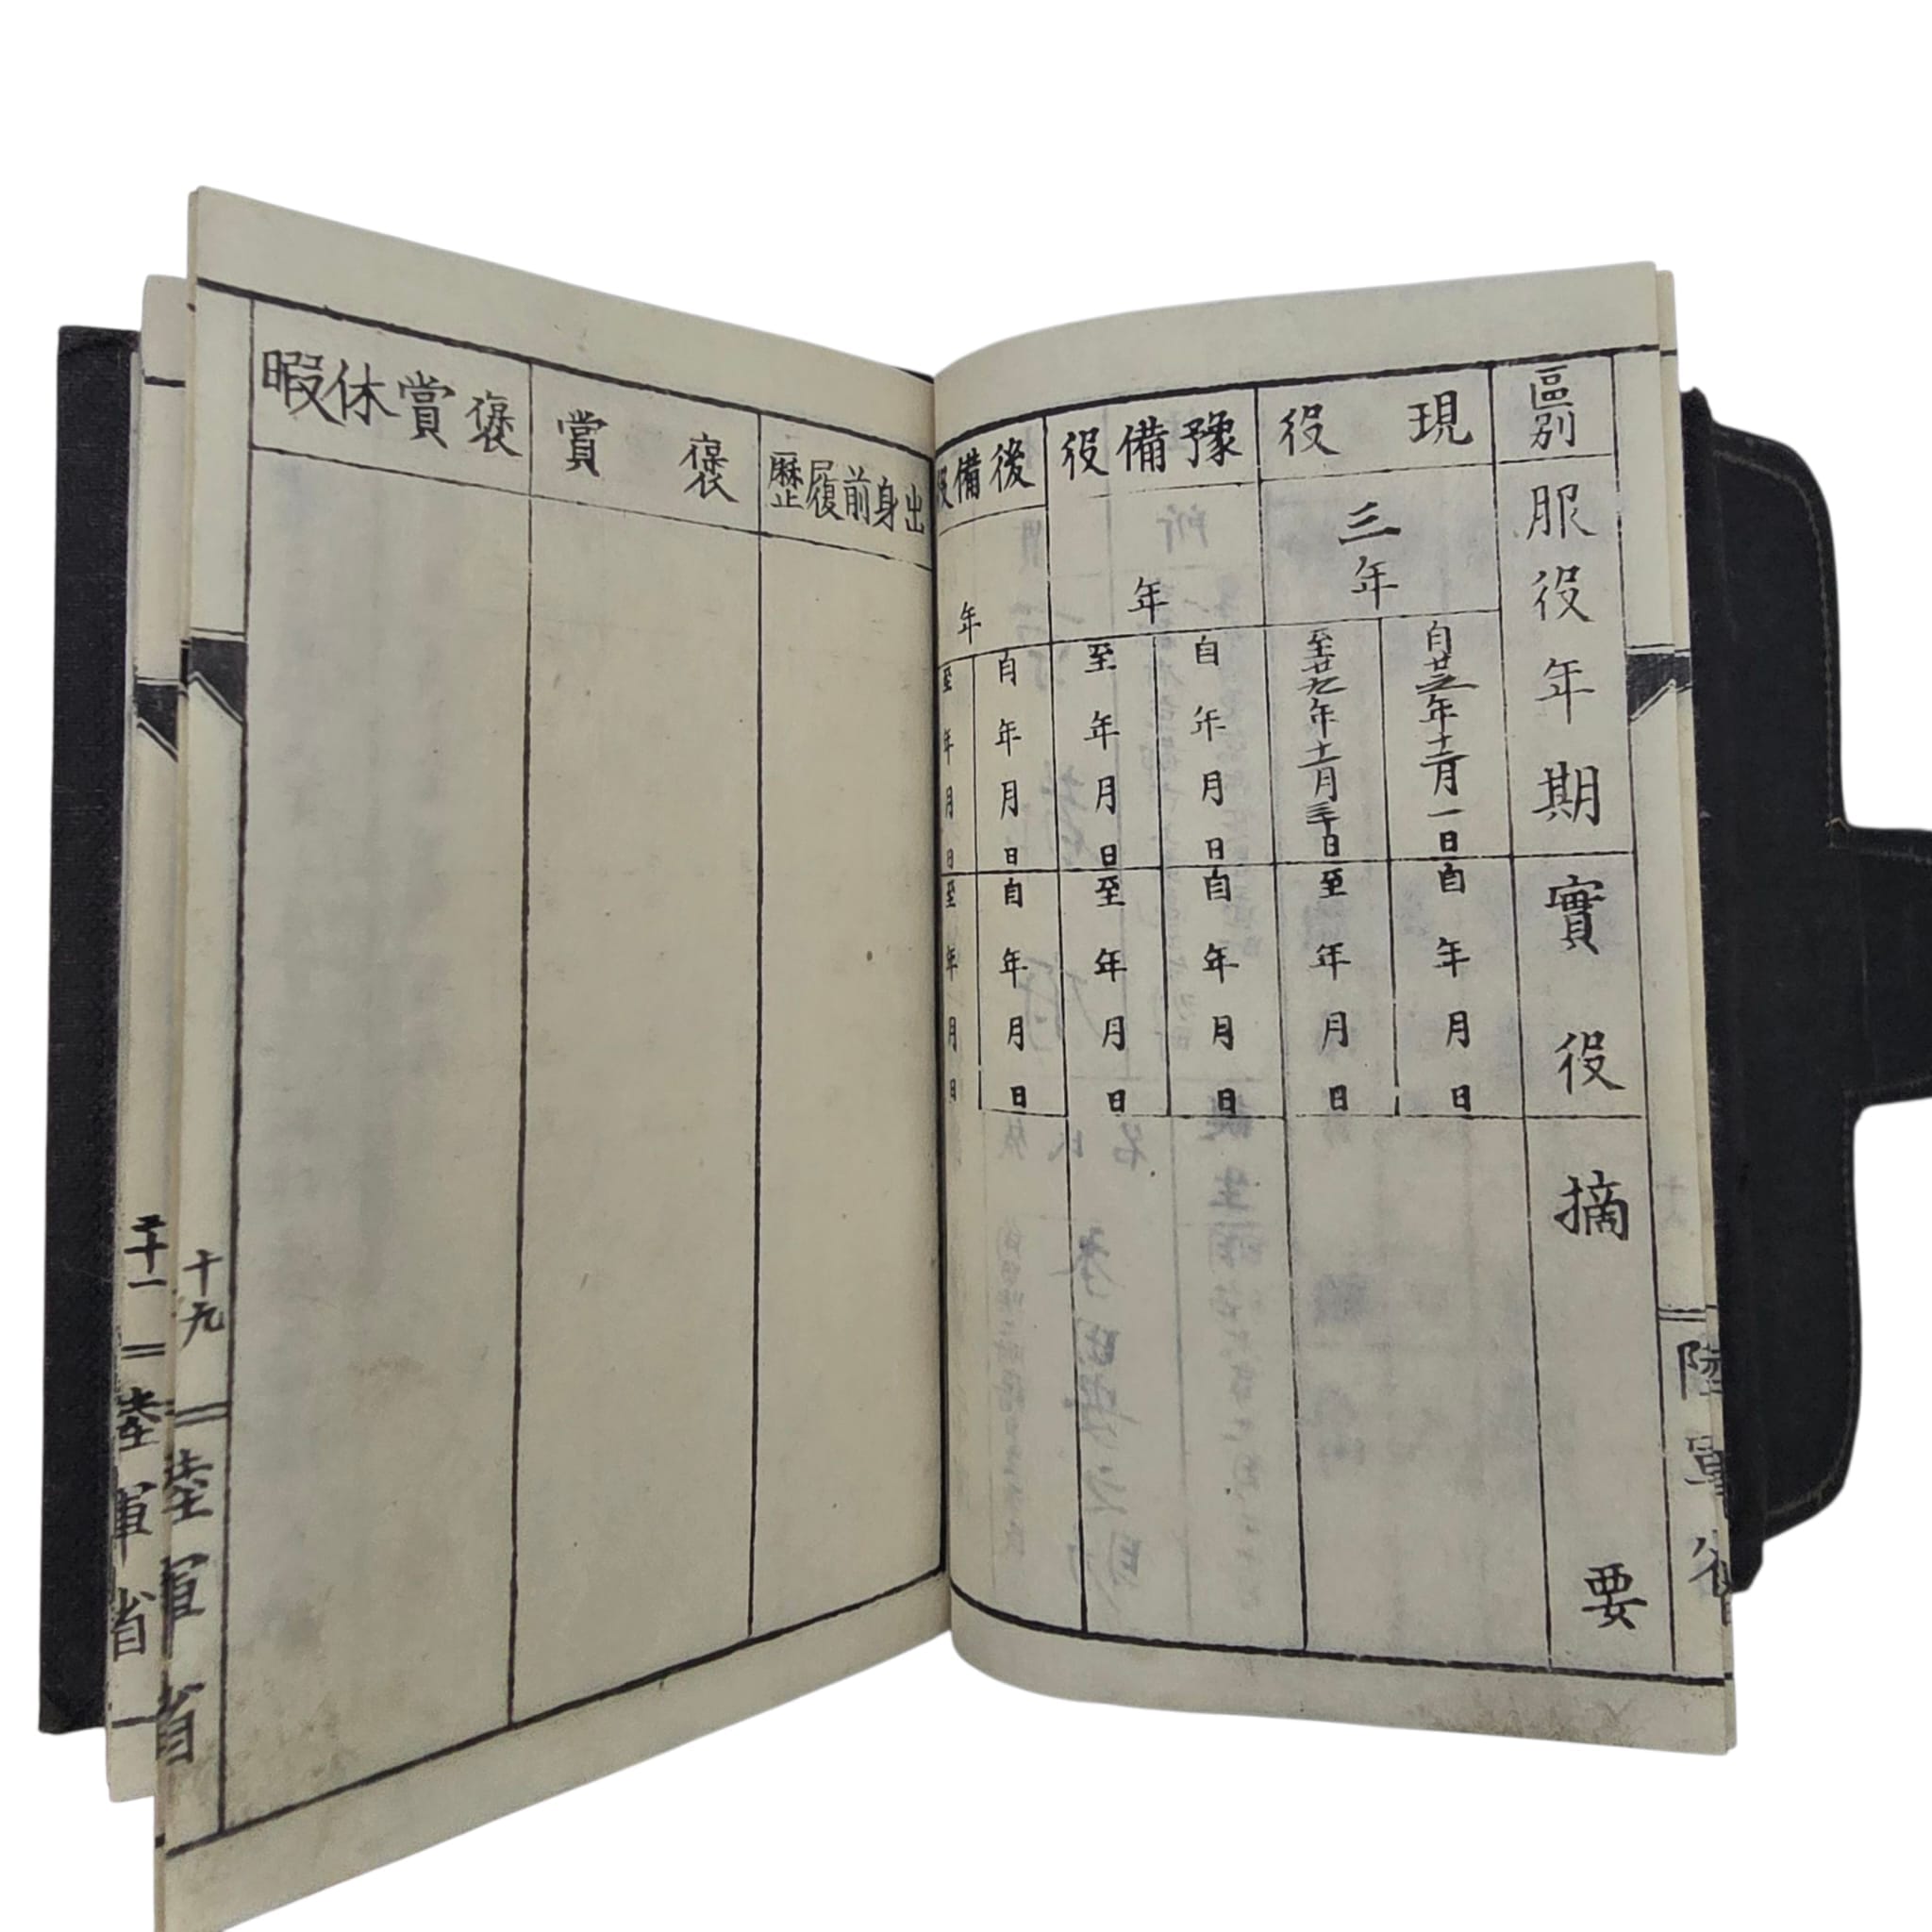 陸軍省
區別
服役年期
實役
摘要
現役
三年
自廿六年十二月一日
至廿九年十一月三十日
自 年 月 日
至 年 月 日
豫備役
年
自 年 月 日
至 年 月 日
自 年 月 日
至 年 月 日
後備役
年
自 年 月 日
至 年 月 日
自 年 月 日
至 年 月 日
出身前履歷
褒賞
褒賞休暇
十九
陸軍省
二十一
陸軍省